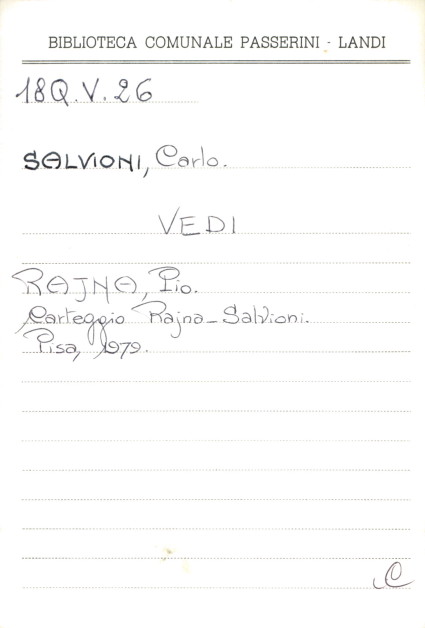 BIBLIOTECA COMUNALE PASSERINI - LANDI
18Q.V.26
SALVIONI, Carlo.
VEDI
RAJNA, Pio.
Carteggio Rajna-Salvioni.
Pisa, 1979.
C